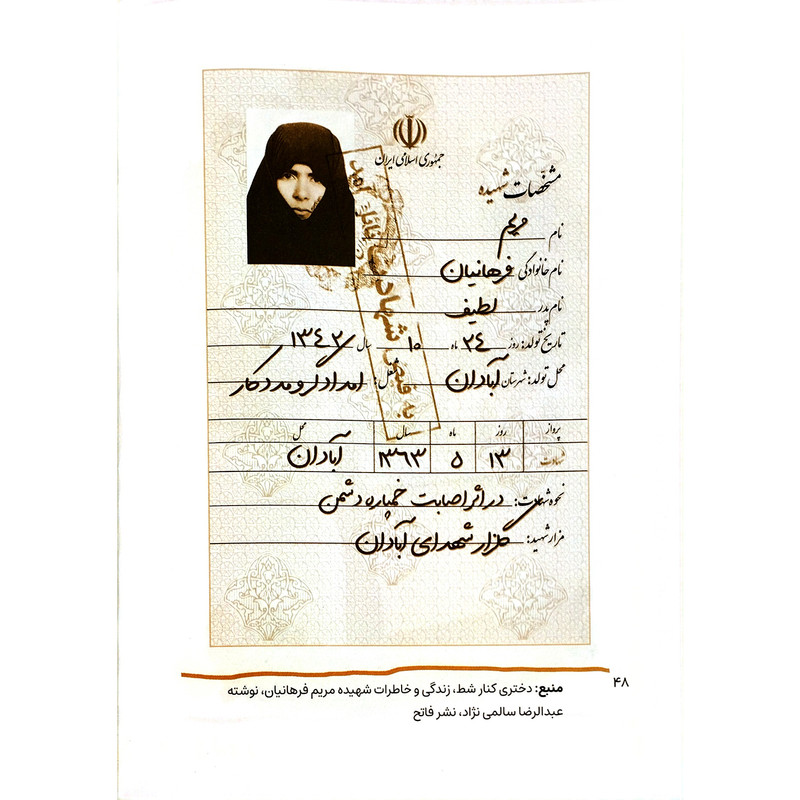 جمهوری اسلامی ایران
مشخّصات شهیده
نام مریم
نام خانوادگی فرهانیان
نام پدر لطیف
تاریخ تولد: روز ۲۴ ماه ۱۰ سال ۱۳۴۲
محل تولد: شهرستان آبادان شغل: امدادگر و مددکار
پرواز روز ماه سال محل
شهادت ۱۳ ۵ ۱۳۶۳ آبادان
نحوه شهادت: در اثر اصابت خمپاره دشمن
مزار شهید: گلزار شهدای آبادان
به فیض شهادت نائل آمد
۴۸
منبع: دختری کنار شط، زندگی و خاطرات شهیده مریم فرهانیان، نوشته
عبدالرضا سالمی نژاد، نشر فاتح